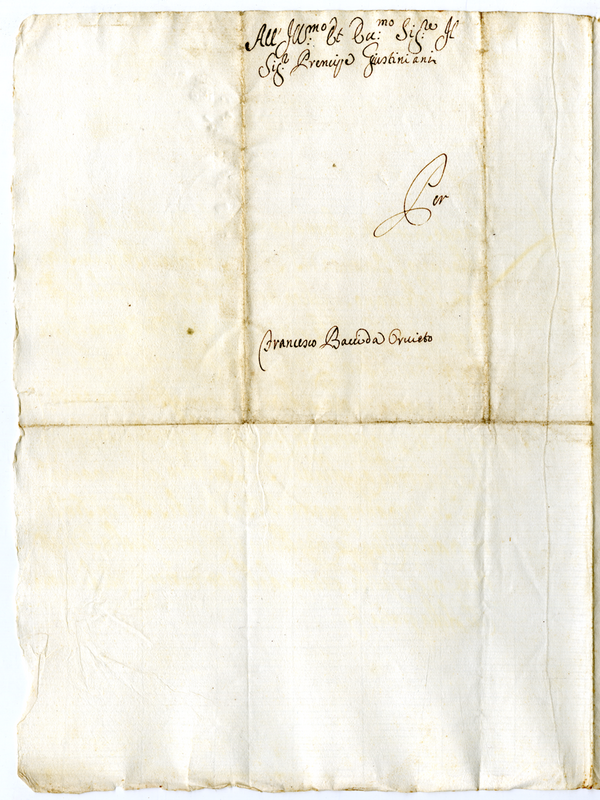 All' Ill:mo Et Ecc:mo Sig:re Il
Sig:r Prencipe Giustiniani
Per
Francesco Bacci da Orvieto